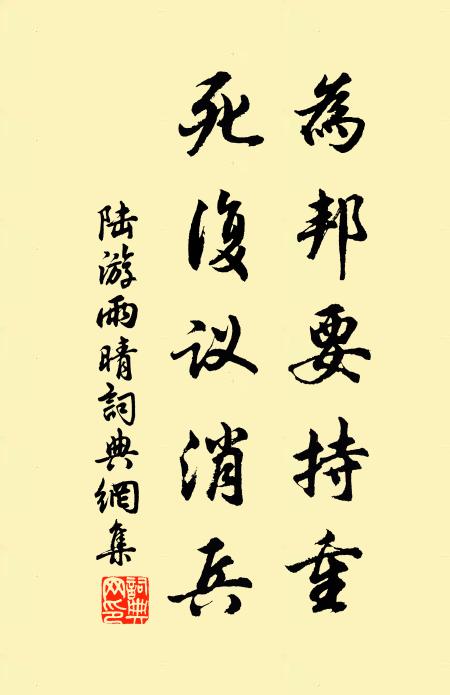 為邦要持重
死復议消兵
陆游雨晴詞典網集
詞典網印